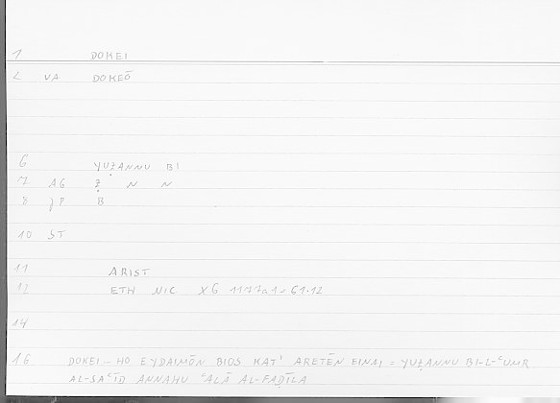 1 DOKEI
2 VA DOKEŌ
6 YUẒANNU BI
7 AG Ẓ N N
8 P B
10 ST
11 ARIST
12 ETH NIC X6
14
16 DOKEI – HO EYDAIMŌN BIOS KAT' ARETĒN EINAI = YUẒANNU BI-L-ʿUMR
AL-SAʿĪD ANNAHU ʿALĀ AL-FAḌĪLA